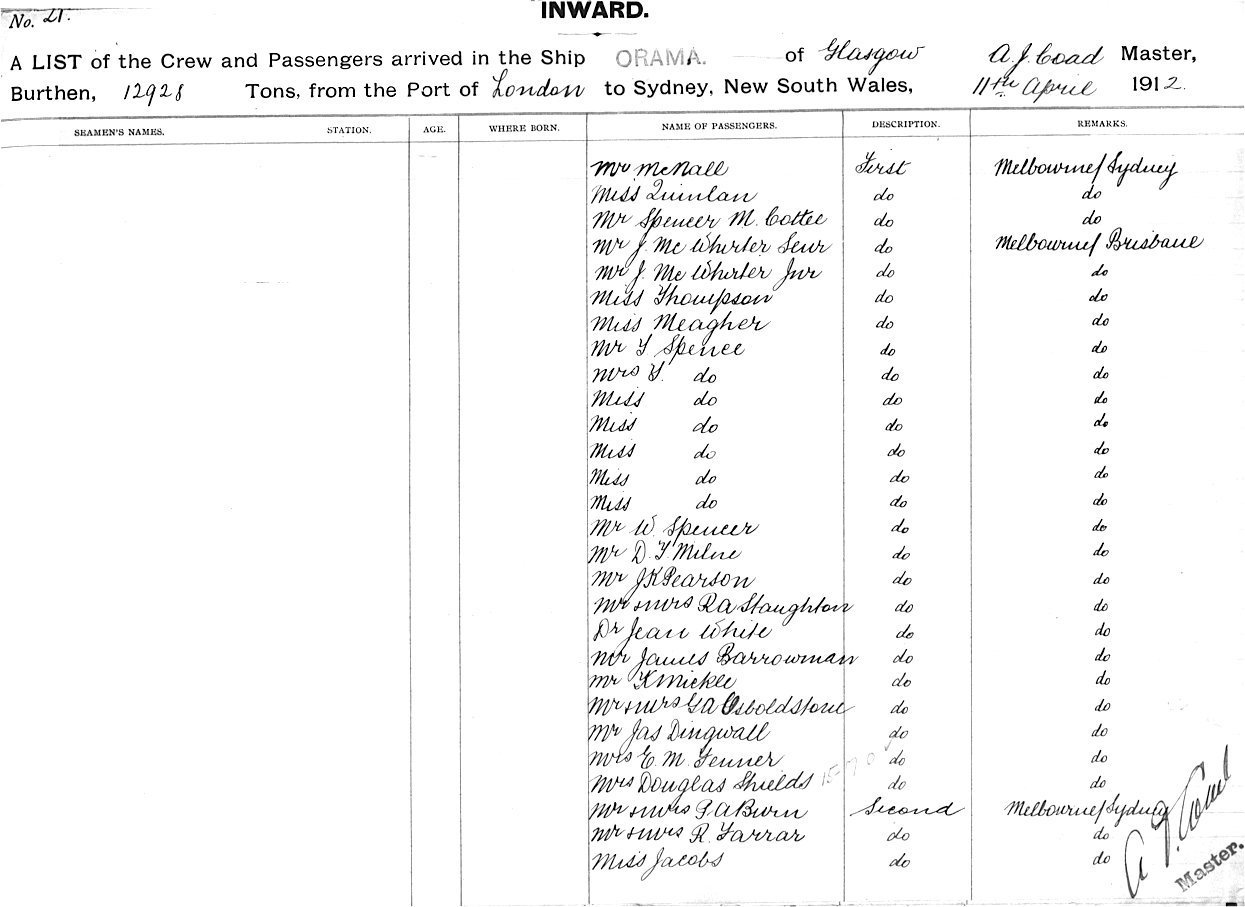 No. 21.
INWARD.
A LIST of the Crew and Passengers arrived in the Ship ORAMA. of Glasgow A. J. Coad Master,
Burthen, 12928 Tons, from the Port of London to Sydney, New South Wales, 11th April 1912.
SEAMEN'S NAMES. STATION. AGE. WHERE BORN. NAME OF PASSENGERS. DESCRIPTION. REMARKS.
Mr McNall First Melbourne/Sydney
Miss Quinlan do do
Mr Spencer M. Cottee do do
Mr J. McWhirter Senr do Melbourne/Brisbane
Mr J. McWhirter Jnr do do
Miss Thompson do do
Miss Meagher do do
Mr Y Spence do do
Mrs Y. do do do
Miss do do do
Miss do do do
Miss do do do
Miss do do do
Miss do do do
Mr W. Spencer do do
Mr D. Y. Milne do do
Mr J K Pearson do do
Mr & Mrs R A Staughton do do
Dr Jean White do do
Mr James Barrowman do do
Mr K Mickle do do
Mr & Mrs G A Osboldstone do do
Mr Jas Dingwall do do
Mrs E. M. Fenner do do
Mrs Douglas Shields do do
Mr & Mrs P A Burn Second Melbourne/Sydney
Mr & Mrs R. Farrar do do
Miss Jacobs do do
A. J. Coad
Master.